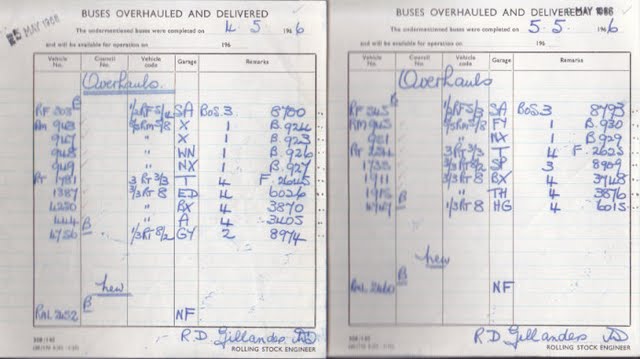 BUSES OVERHAULED AND DELIVERED
5 MAY 1966
The undermentioned buses were completed on 4 5 196 6
and will be available for operation on 196
Vehicle No. Council No. Vehicle code Garage Remarks
Overhauls
B
RF 503 1/2RF5/ SA BOS. 3 8700
RM 943 1/5RM5/8 X 1 B.924
947 " X 1 B.923
948 " WN 1 B.926
949 " NX 1 B.927
RT 1781 3 RT 3/3 T 4 F 2645
1387 3/3RT 8 ED 4 6026
4250 " BX 4 3870
444 " A 4 3405
4756 B 1/3RT 8/2 GY 2 8974
New
B
RML 2652 NF
R.D. Gillanders
ROLLING STOCK ENGINEER
BUSES OVERHAULED AND DELIVERED
MAY 1966
The undermentioned buses were completed on 5 5. 196 6
and will be available for operation on 196
Vehicle No. Council No. Vehicle code Garage Remarks
Overhauls
B
RF 345 1/2RF5/3 SA BOS. 3 8793
RM 945 1/5RM5/8 FY 1 B.930
951 " NX 1 B.929
RT 3 RT 3/3 T 4 F 2623
1735 SP 3 8909
1911 3/3RT 8 BX 4 3748
1915 " TH 4 3876
4747 B 1/3RT 8 HG 4 6015
New
B
RML 2660 NF
R.D. Gillanders
ROLLING STOCK ENGINEER